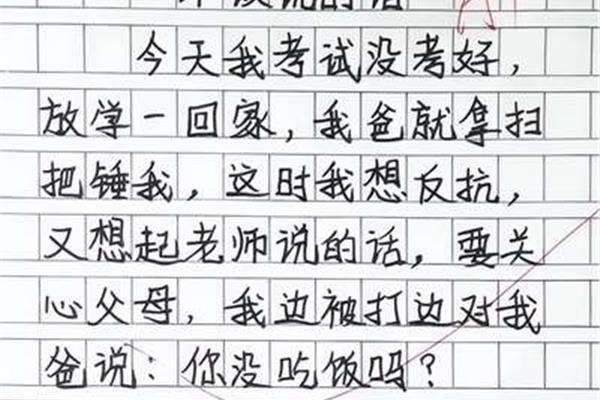 不该说的话
今天我考试没考好，
放学一回家，我爸就拿扫
把锤我，这时我想反抗，
又想起老师说的话，要关
心父母，我边被打边对我
爸说：你没吃饭吗？